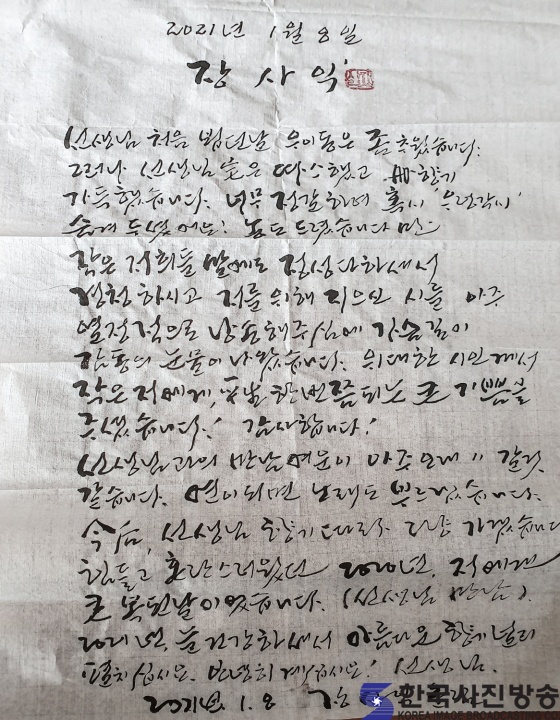 2021년 1월 8일
장사익
선생님 처음 뵙던날 우이동은 좀 추웠습니다.
그러나 선생님 室은 따스했고 冊향기
가득했습니다. 너무 정갈하여 혹시 '우렁각시'
숨겨 두셨 여쭙 농도 드렸습니다 만
작은 저희들 말에도 정성다하셔서
경청하시고 저를 위해 지으신 시를 아주
열정적으로 낭송해주심에 가슴깊이
감동의 눈물이 나왔습니다. 위대한 시인께서
작은 저에게, 한번쯤 되는 큰 기쁨을
주셨습니다! 감사합니다!
선생님과의 만남 여운이 아주 오래 갈것
같습니다. 연이되면 노래도 부르겠습니다.
今后, 선생님 향기 따라 가겠습니다
힘들고 혼란스러웠던 2020년, 저에겐
큰 복된날이었습니다. (선생님 만남).
2021년 늘 건강하셔서 아름다운 향기 널리
펼치십시요. 안녕히 계십시요! 선생님.
2021년. 1. 8
한국사진방송